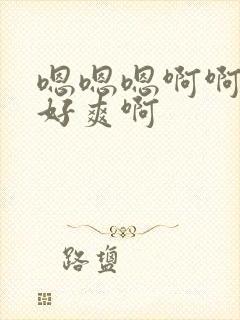 嗯嗯嗯啊啊
好爽啊
路盐